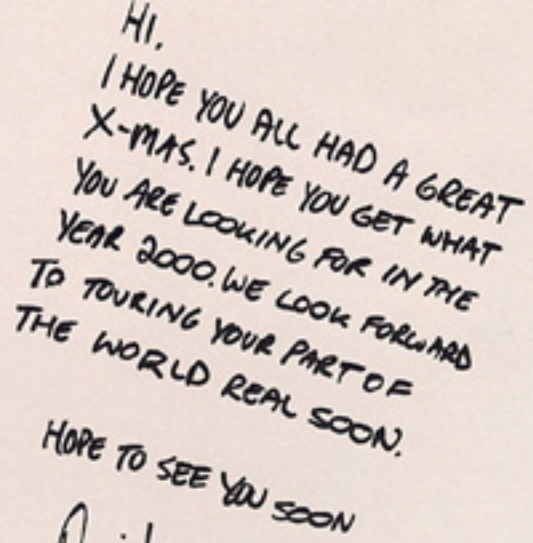 HI,
I HOPE YOU ALL HAD A GREAT
X-MAS. I HOPE YOU GET WHAT
YOU ARE LOOKING FOR IN THE
YEAR 2000. WE LOOK FORWARD
TO TOURING YOUR PART OF
THE WORLD REAL SOON.
HOPE TO SEE YOU SOON